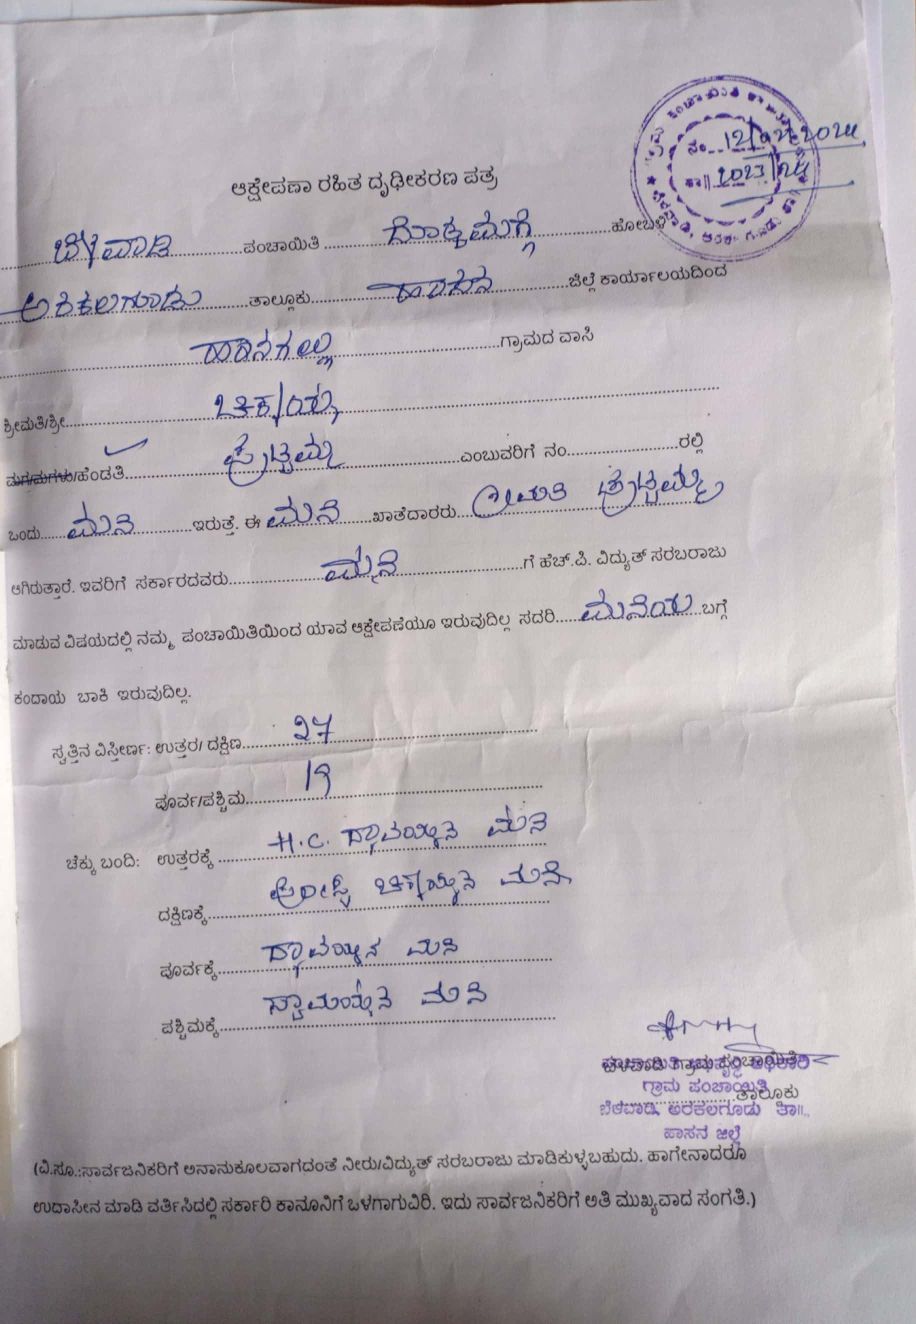 ನಂ. 12/02/2024
ತಾ|| 2023/24
ಆಕ್ಷೇಪಣಾ ರಹಿತ ದೃಢೀಕರಣ ಪತ್ರ
ಬೆಳವಾಡಿ ಪಂಚಾಯಿತಿ ದೊಡ್ಡಮಗ್ಗೆ ಹೋಬಳಿ
ಅರಕಲಗೂಡು ತಾಲ್ಲೂಕು ಹಾಸನ ಜಿಲ್ಲೆ ಕಾರ್ಯಾಲಯದಿಂದ
ಗ್ರಾಮದ ವಾಸಿ
ಶ್ರೀಮತಿ/ಶ್ರೀ
ಮಗ/ಮಗಳು/ಹೆಂಡತಿ ಪುಟ್ಟಮ್ಮ ಎಂಬುವರಿಗೆ ನಂ ರಲ್ಲಿ
ಒಂದು ಮನೆ ಇರುತ್ತೆ. ಈ ಮನೆ ಖಾತೆದಾರರು ಶ್ರೀಮತಿ ಪುಟ್ಟಮ್ಮ
ಆಗಿರುತ್ತಾರೆ. ಇವರಿಗೆ ಸರ್ಕಾರದವರು ಮನೆ ಗೆ ಹೆಚ್.ಪಿ. ವಿದ್ಯುತ್ ಸರಬರಾಜು
ಮಾಡುವ ವಿಷಯದಲ್ಲಿ ನಮ್ಮ ಪಂಚಾಯಿತಿಯಿಂದ ಯಾವ ಆಕ್ಷೇಪಣೆಯೂ ಇರುವುದಿಲ್ಲ ಸದರಿ ಮನೆಯ ಬಗ್ಗೆ
ಕಂದಾಯ ಬಾಕಿ ಇರುವುದಿಲ್ಲ.
ಸ್ವತ್ತಿನ ವಿಸ್ತೀರ್ಣ: ಉತ್ತರ/ ದಕ್ಷಿಣ 27
ಪೂರ್ವ/ಪಶ್ಚಿಮ 19
ಚೆಕ್ಕು ಬಂದಿ: ಉತ್ತರಕ್ಕೆ H.C. ದ್ಯಾವಯ್ಯನ ಮನೆ
ದಕ್ಷಿಣಕ್ಕೆ ಮನೆ
ಪೂರ್ವಕ್ಕೆ ದ್ಯಾವಯ್ಯನ ಮನೆ
ಪಶ್ಚಿಮಕ್ಕೆ ಮನೆ
ಗ್ರಾಮ ಪಂಚಾಯಿತಿ
ತಾಲೂಕು
ಬೆಳವಾಡಿ, ಅರಕಲಗೂಡು ತಾ||,
ಹಾಸನ ಜಿಲ್ಲೆ
(ವಿ.ಸೂ.:ಸಾರ್ವಜನಿಕರಿಗೆ ಅನಾನುಕೂಲವಾಗದಂತೆ ನೀರು/ವಿದ್ಯುತ್ ಸರಬರಾಜು ಮಾಡಿಕುಳ್ಳಬಹುದು. ಹಾಗೇನಾದರೂ
ಉದಾಸೀನ ಮಾಡಿ ವರ್ತಿಸಿದಲ್ಲಿ ಸರ್ಕಾರಿ ಕಾನೂನಿಗೆ ಒಳಗಾಗುವಿರಿ. ಇದು ಸಾರ್ವಜನಿಕರಿಗೆ ಅತಿ ಮುಖ್ಯವಾದ ಸಂಗತಿ.)